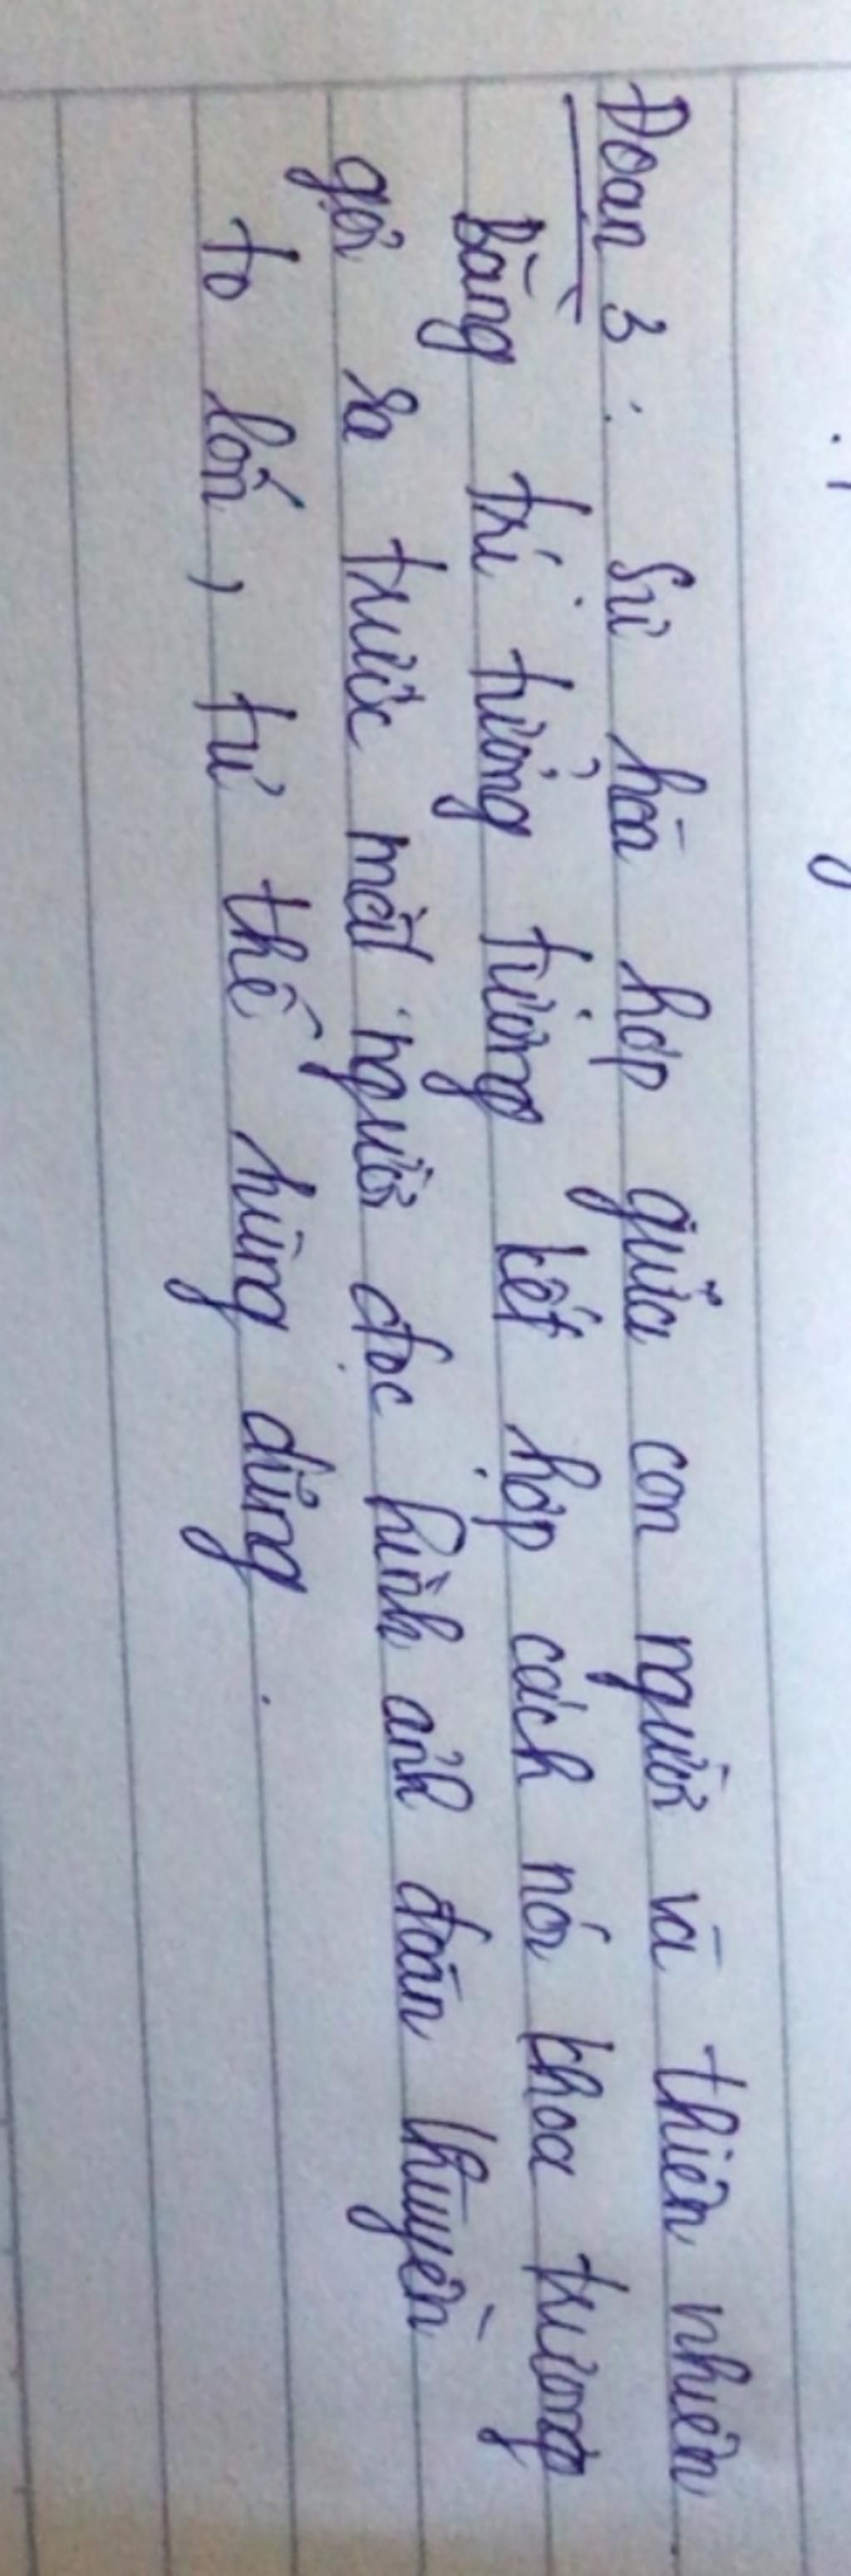 Đoạn 3: Sự hòa hợp giữa con người và thiên nhiên
Bằng trí tưởng tượng kết hợp cách nói khoa trương
gợi ra trước mắt người đọc hình ảnh đoàn thuyền
to lớn, tư thế hùng dũng.